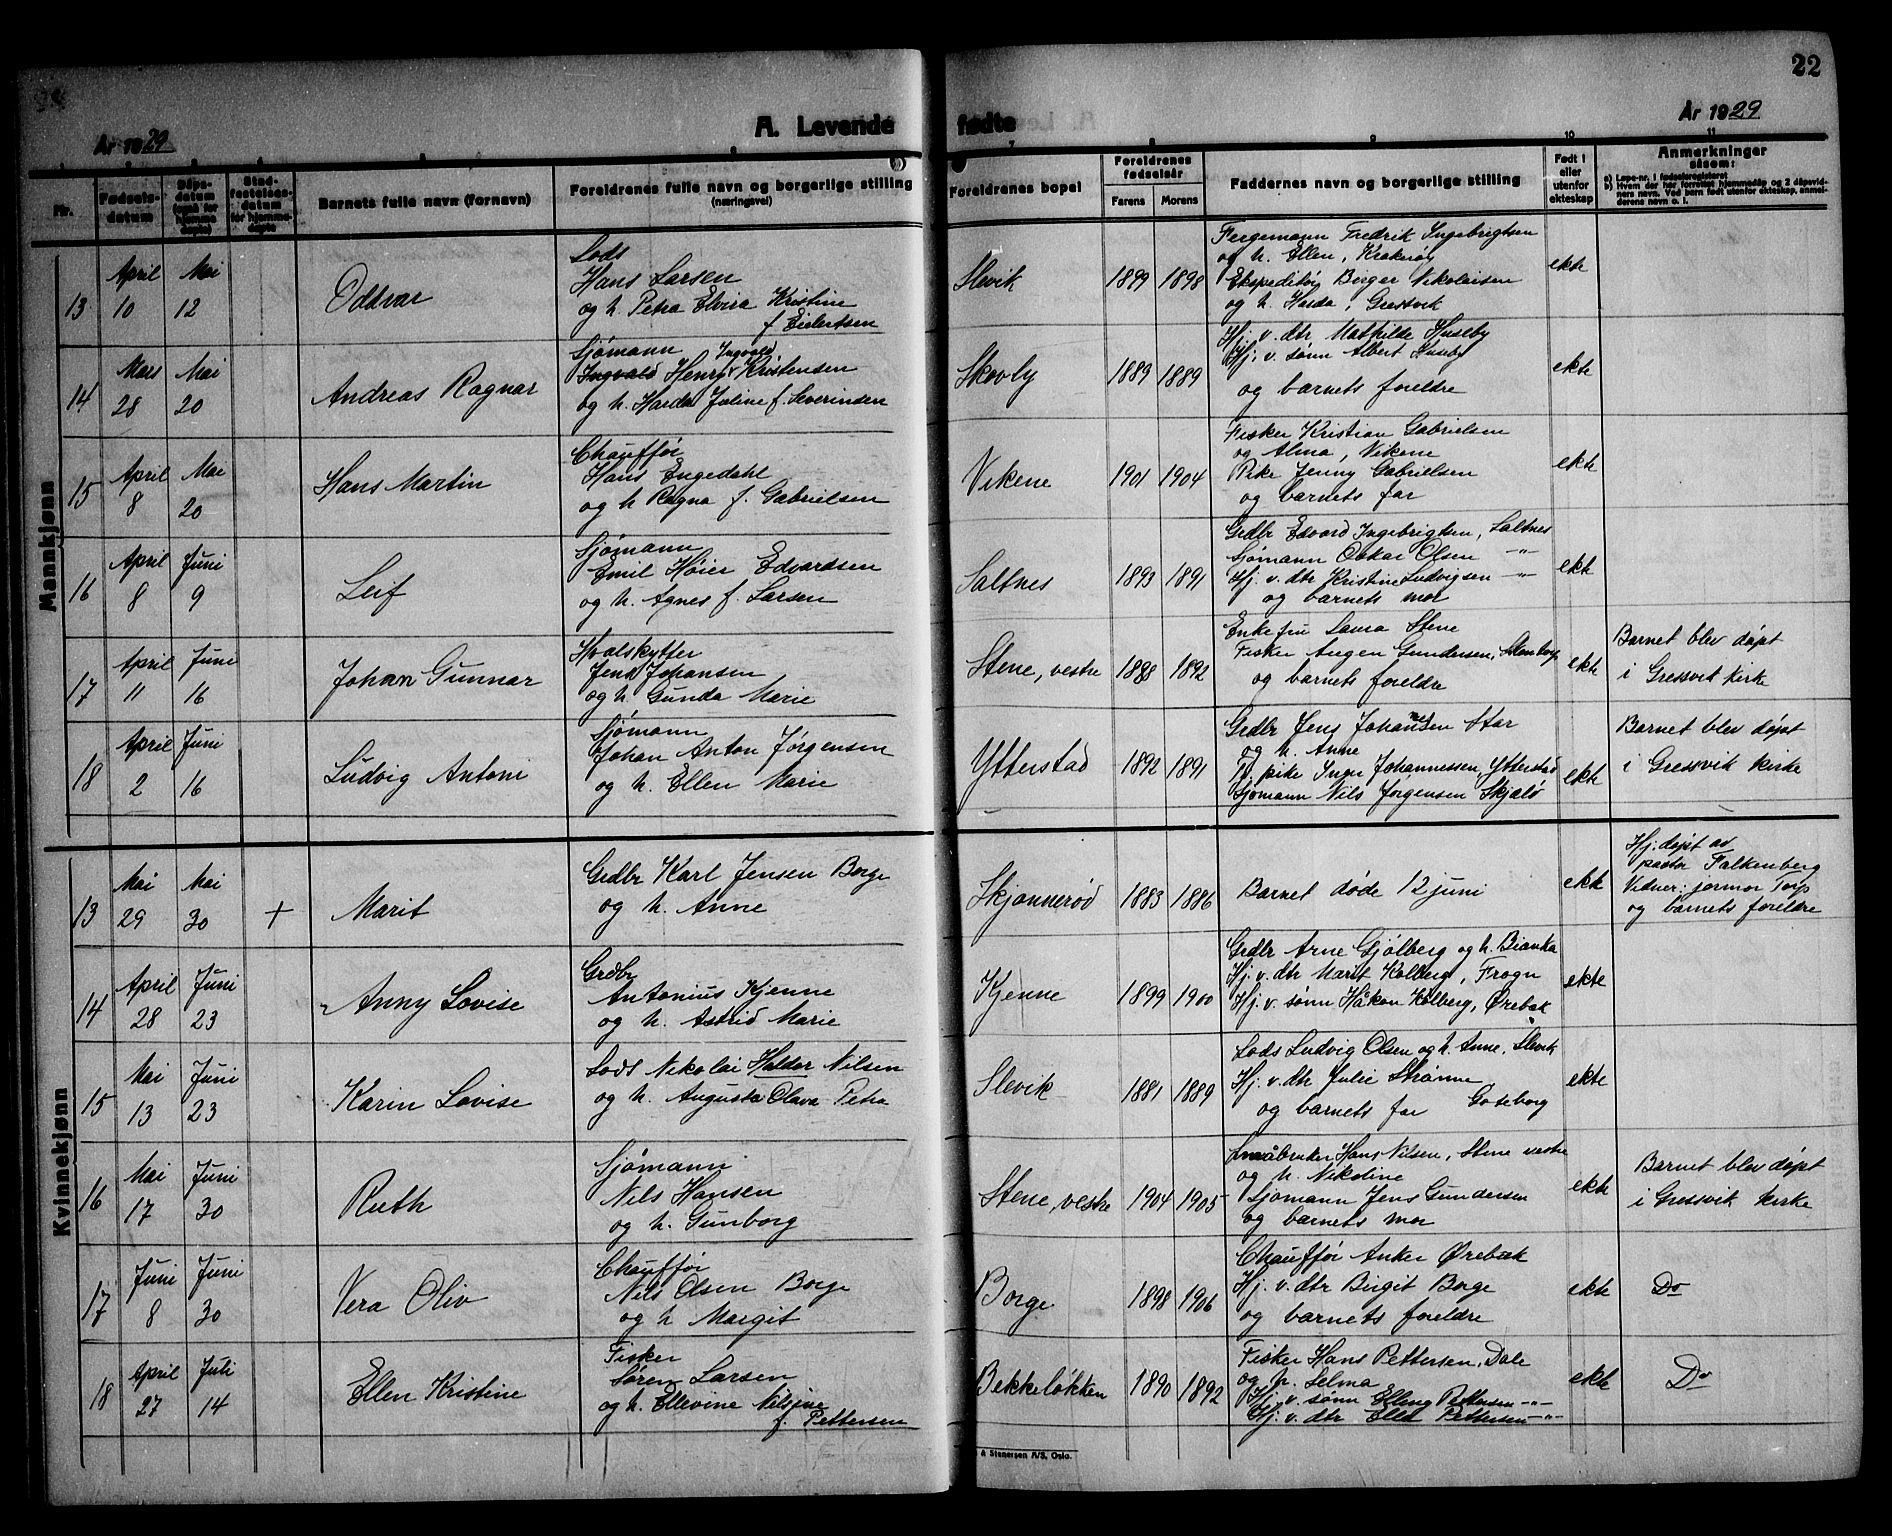 22
År 1929
A. Levende fødte
År 1929
Nr.
Fødselsdatum
Dåpsdatum
Stadfestelsesdatum for hjemmedøpte
Barnets fulle navn (fornavn)
Foreldrenes fulle navn og borgerlige stilling
(næringsvei)
7 8 9 10 11
Foreldrenes bopel
Foreldrenes fødselsår
Farens Morens
Faddernes navn og borgerlige stilling
Født i eller utenfor ekteskap
Anmerkninger
såsom:
a) Løpe-nr. i fødselsregisteret
b) Hvem der har forrettet hjemmedåp og 2 dåpsvidners navn. Ved barn født utenfor ekteskap, anmelderens navn o. l.
Mannkjønn
13 April 10 Mai 12 Oddvar
Lods
Hans Larsen
og h. Petra Elvira Kristine
f. Eilertsen
Slevik 1899 1898
Fergemann Fredrik Ingebrigtsen
og h. Ellen, Kråkerøy
Ekspeditør Birger Nikolaisen
og h. Harda, Gressvik
ekte
14 Mars 28 Mai 20 Andreas Ragnar
Sjømann Ingvald
Ingvald Henry Kristensen
og h. Harda Juline f. Severinsen
Skovly 1889 1889
Hj. v. dtr Mathilde Huseby
Hj. v. sønn Albert Huseby
og barnets foreldre
ekte
15 April 8 Mai 20 Hans Martin
Chauffør
Hans Engedahl
og h Ragna f. Gabrielsen
Vikene 1901 1904
Fisker Kristian Gabrielsen
og Alma, Vikene
Pike Jenny Gabrielsen
og barnets far
ekte
16 April 8 Juni 9 Leif
Sjømann
Emil Høier Edvardsen
og h. Agnes f. Larsen
Saltnes 1893 1891
Grdbr Edvard Ingebrigtsen, Saltnes
Sjømann Oskar Olsen -"-
Hj. v. dtr Kristine Ludvigsen -"-
og barnets mor
ekte
17 April 11 Juni 16 Johan Gunnar
Hvalskytter
Jens Johansen
og h Gunda Marie
Stene, vestre 1888 1892
Enkefru Laura Stene
Fisker Jørgen Gundersen,
og barnets foreldre
ekte
Barnet blev døpt
i Gressvik kirke
18 April 2 Juni 16 Ludvig Antoni
Sjømann
Johan Anton Jørgensen
og h. Ellen Marie
Ytterstad 1892 1891
Grdbr Jens Johannesen
og h. Anne
Tj. pike Inga Johannessen, Ytterstad
Sjømann Nils Jørgensen Skjælø
ekte
Barnet blev døpt
i Gressvik kirke
Kvinnekjønn
13 Mai 29 Mai 30 + Marit
Grdbr Karl Jensen Borge
og h. Anne
Skjønnerød 1883 1886
Barnet døde 12 juni
ekte
Hj. døpt av
pastor Falkenberg
Vidner: jormor Torp
og barnets foreldre
14 April 28 Juni 23 Anny Lovise
Grdbr
Antonius Kjenne
og h. Astrid Marie
Kjenne 1899 1900
Grdbr Arne Gjølberg og h. Bianka
Hj. v. dtr Marit Kolberg, Frogn
Hj. v. sønn Håkon Kolberg, Ørebæk
ekte
15 Mai 13 Juni 23 Karin Lovise
Lods Nikolai Haldor Nilsen
og h. Augusta Olava Petra
Slevik 1881 1889
Lods Ludvig Olsen og h. Anne, Slevik
Hj. v. dtr Julie Strønne
og barnets far Goteborg
ekte
16 Mai 17 Juni 30 Ruth
Sjømann
Nils Hansen
og h. Gunborg
Stene, vestre 1904 1905
Småbruker Hans Nilsen, Stene vestre
og h. Nikoline
Sjømann Jens Gundersen
og barnets mor
ekte
Barnet blev døpt
i Gressvik kirke
17 Juni 8 Juni 30 Vera Oliv
Chauffør
Nils Olsen Borge
og h Margit
Borge 1898 1906
Chauffør Anker Ørebæk
Hj. v. dtr Birgit Borge
og barnets foreldre
ekte
Do
18 April 27 Juli 14 Ellen Kristine
Fisker
Søren Larsen
og h. Ellevine Nilsine
f. Pettersen
Bekkeløkken 1890 1892
Fisker Hans Pettersen, Dale
og h. Selma
Hj. v. sønn Elling Pettersen -"-
Hj. v. dtr Ellet Pettersen -"-
ekte
Do
& Stenersen A/S, Oslo.